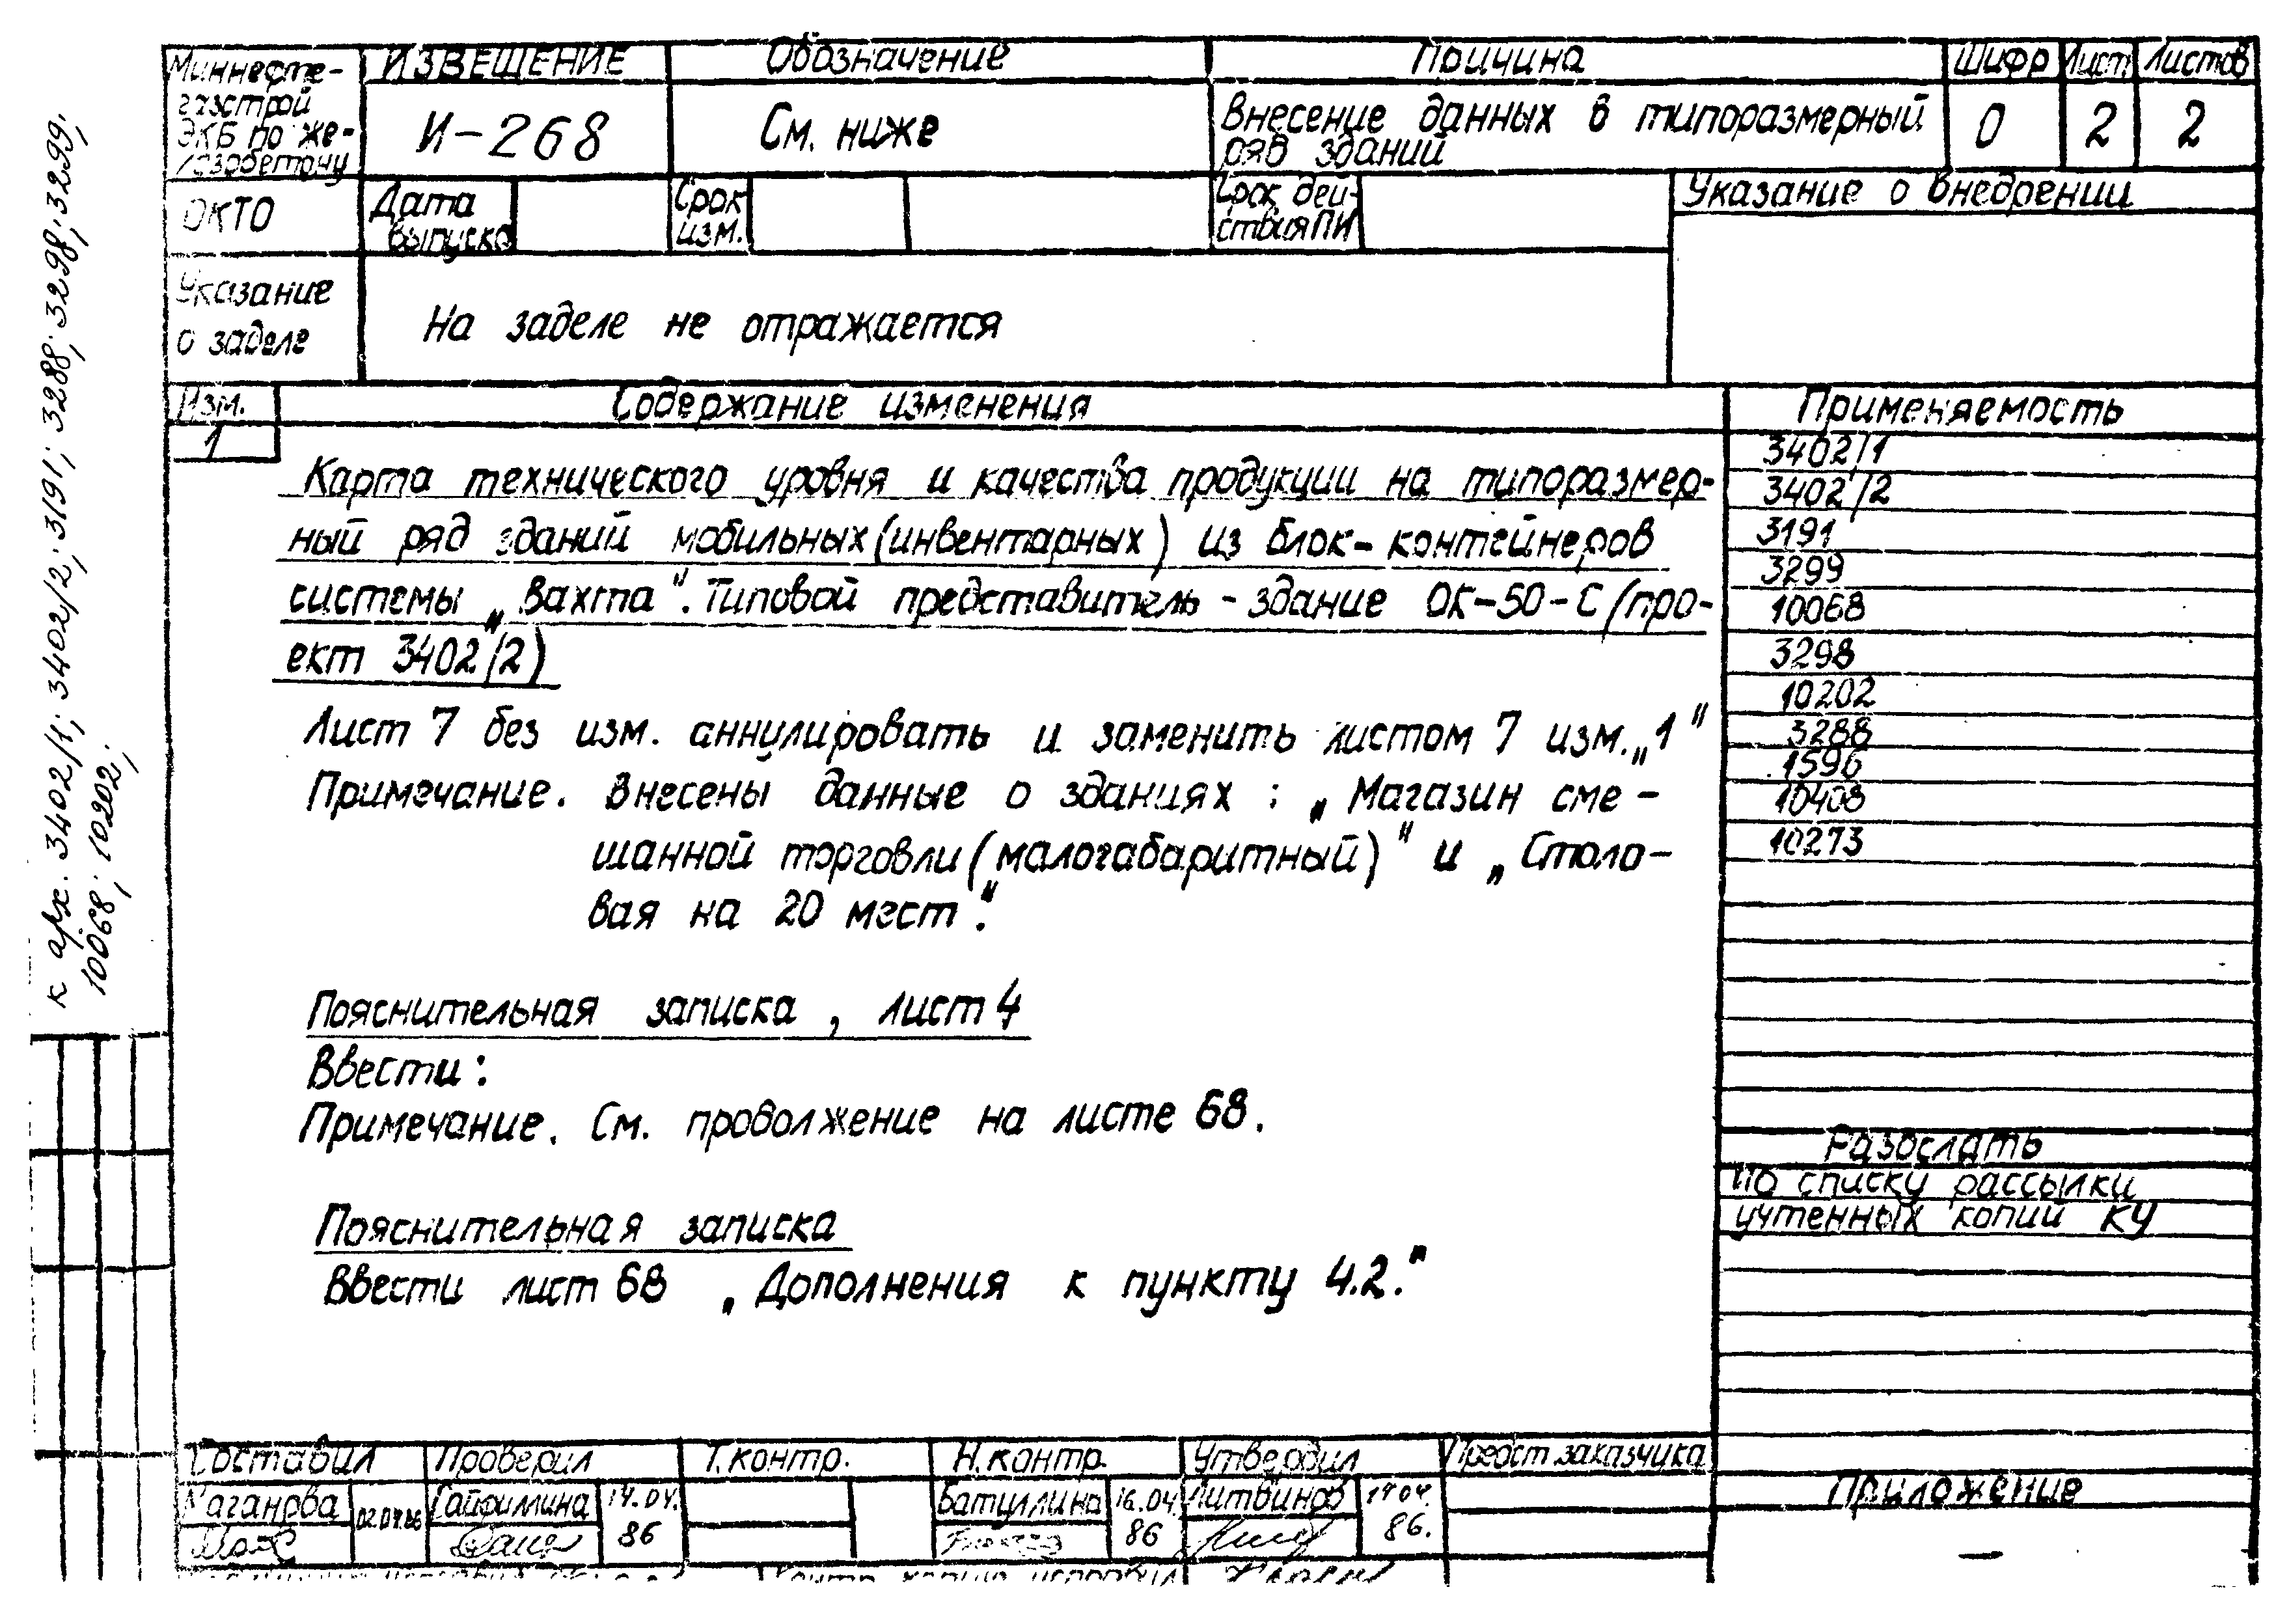 Миннефте-
газстрой
ЭКБ по же-
лезобетону
ИЗВЕЩЕНИЕ
Обозначение
Причина
Шифр
Лист
Листов
И-268
См. ниже
Внесение данных в типоразмерный
ряд зданий
0
2
2
ОКТО
Дата
выпуска
Срок
изм.
Срок дей-
ствия ПИ
Указание о внедрении
Указание
о заделе
На заделе не отражается
Изм.
Содержание изменения
Применяемость
1
Карта технического уровня и качества продукции на типоразмер-
ный ряд зданий мобильных (инвентарных) из блок-контейнеров
системы „Вахта". Типовой представитель - здание ОК-50-С (про-
ект 3402/2)
Лист 7 без изм. аннулировать и заменить листом 7 изм. „1"
Примечание. Внесены данные о зданиях : „Магазин сме-
шанной торговли (малогабаритный)" и „Столо-
вая на 20 мест".
Пояснительная записка, лист 4
Ввести:
Примечание. См. продолжение на листе 68.
Пояснительная записка
Ввести лист 68 „Дополнения к пункту 4.2."
3402/1
3402/2
3191
3299
10068
3298
10202
3288
1596
10408
10273
Разослать
По списку рассылки
учтенных копий КУ
Приложение
—
Составил
Проверил
Т. контр.
Н. контр.
Утвердил
Предст. заказчика
02.04.86
14.04.
86
Батуллина
16.04
86
Литвинов
17.04.
86.
к арх. 3402/1; 3402/2; 3191; 3288; 3298; 3299;
10068; 10202;